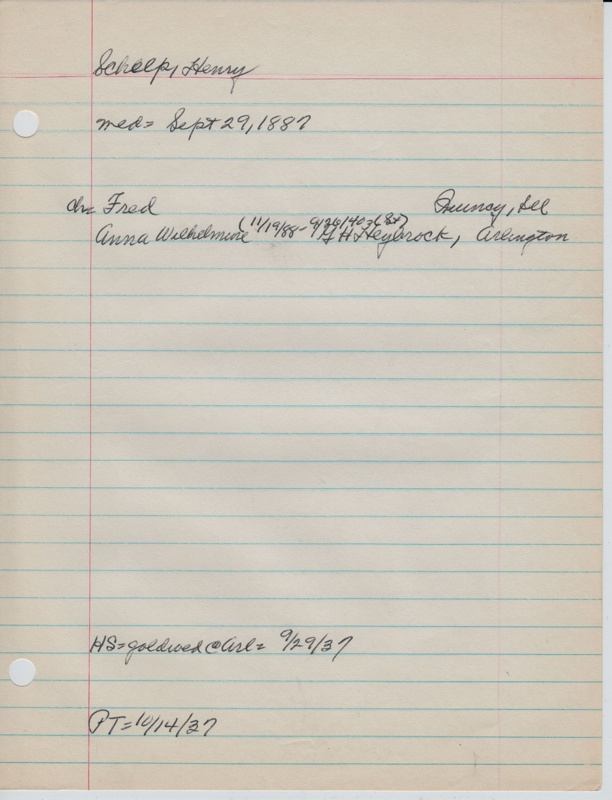 Schelp, Henry
med= Sept 29, 1887
ch= Fred Quincy, Ill
(11/19/88-9/26/40=(St)
Anna Wilhelmine G H Heybrock, Arlington
HS=goldwed @ Arl= 9/29/37
PT=10/14/37